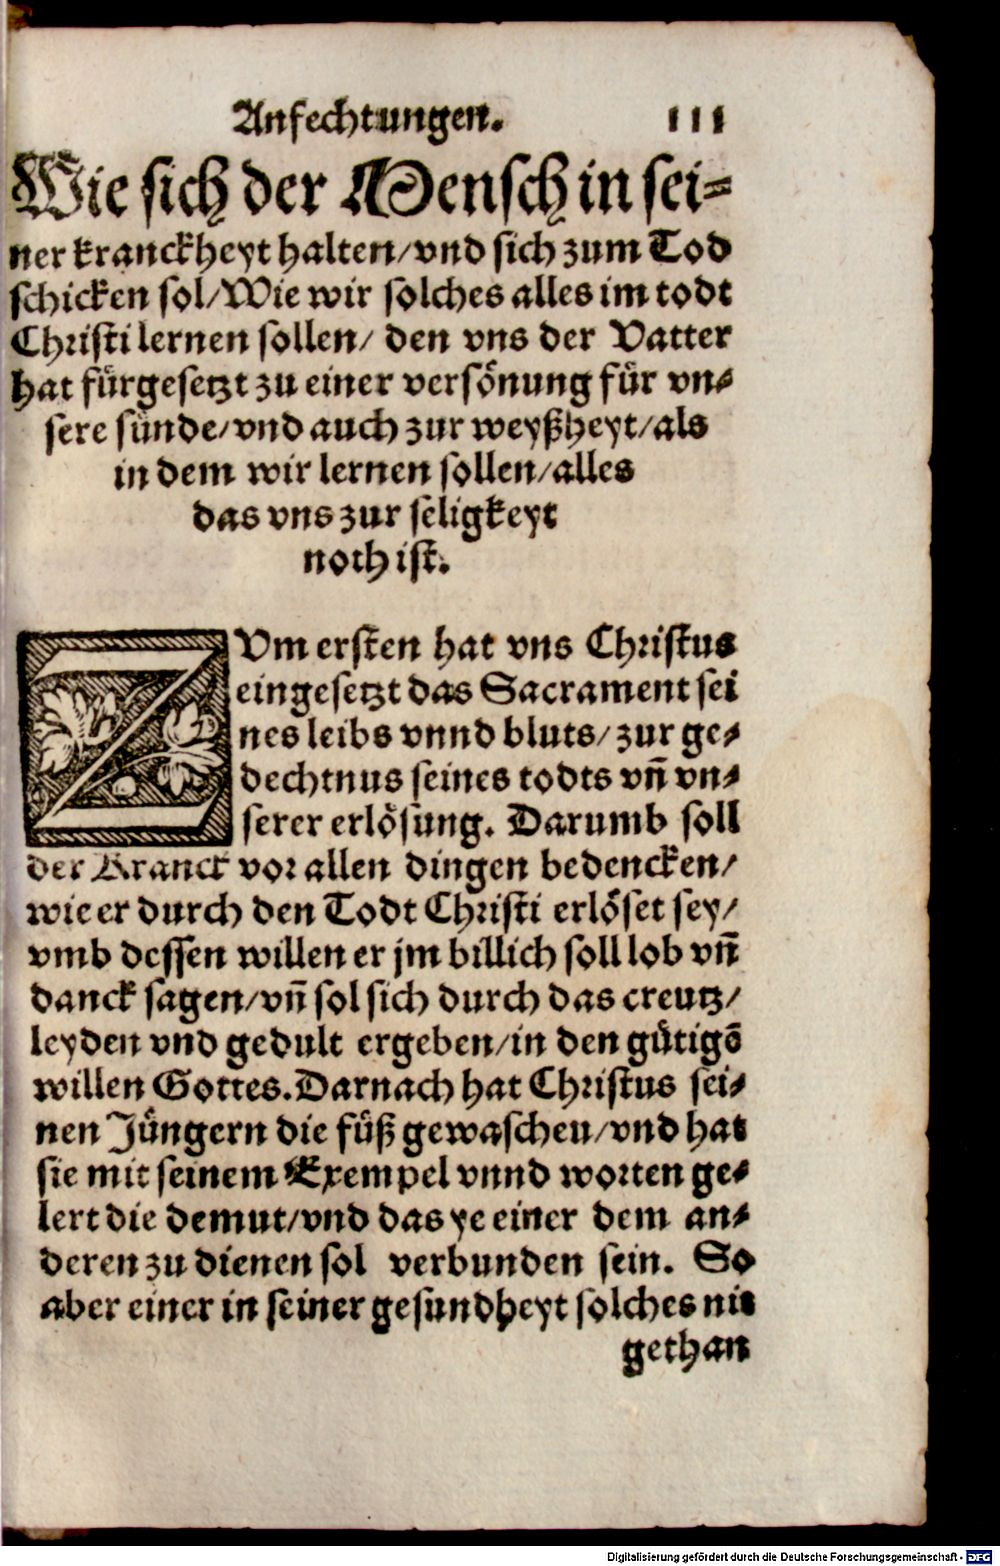 Anfechtungen. 111
Wie sich der Mensch in sei-
ner kranckheyt halten/vnd sich zum Tod
schicken sol/Wie wir solches alles im todt
Christi lernen sollen/ den vns der Vatter
hat fürgesetzt zu einer versönung für vn-
sere sünde/vnd auch zur weyßheyt/als
in dem wir lernen sollen/alles
das vns zur seligkeyt
noth ist.
ZVm ersten hat vns Christus
eingesetzt das Sacrament sei
nes leibs vnnd bluts/zur ge-
dechtnus seines todts vñ vn-
serer erlösung. Darumb soll
der Kranck vor allen dingen bedencken/
wie er durch den Todt Christi erlöset sey/
vmb dessen willen er jm billich soll lob vñ
danck sagen/vñ sol sich durch das creutz/
leyden vnd gedult ergeben/in den gütigē
willen Gottes. Darnach hat Christus sei-
nen Jüngern die füß gewaschen/vnd hat
sie mit seinem Exempel vnnd worten ge-
lert die demut/vnd das ye einer dem an-
deren zu dienen sol verbunden sein. So
aber einer in seiner gesundheyt solches nit
gethan
Digitalisierung gefördert durch die Deutsche Forschungsgemeinschaft - DFG